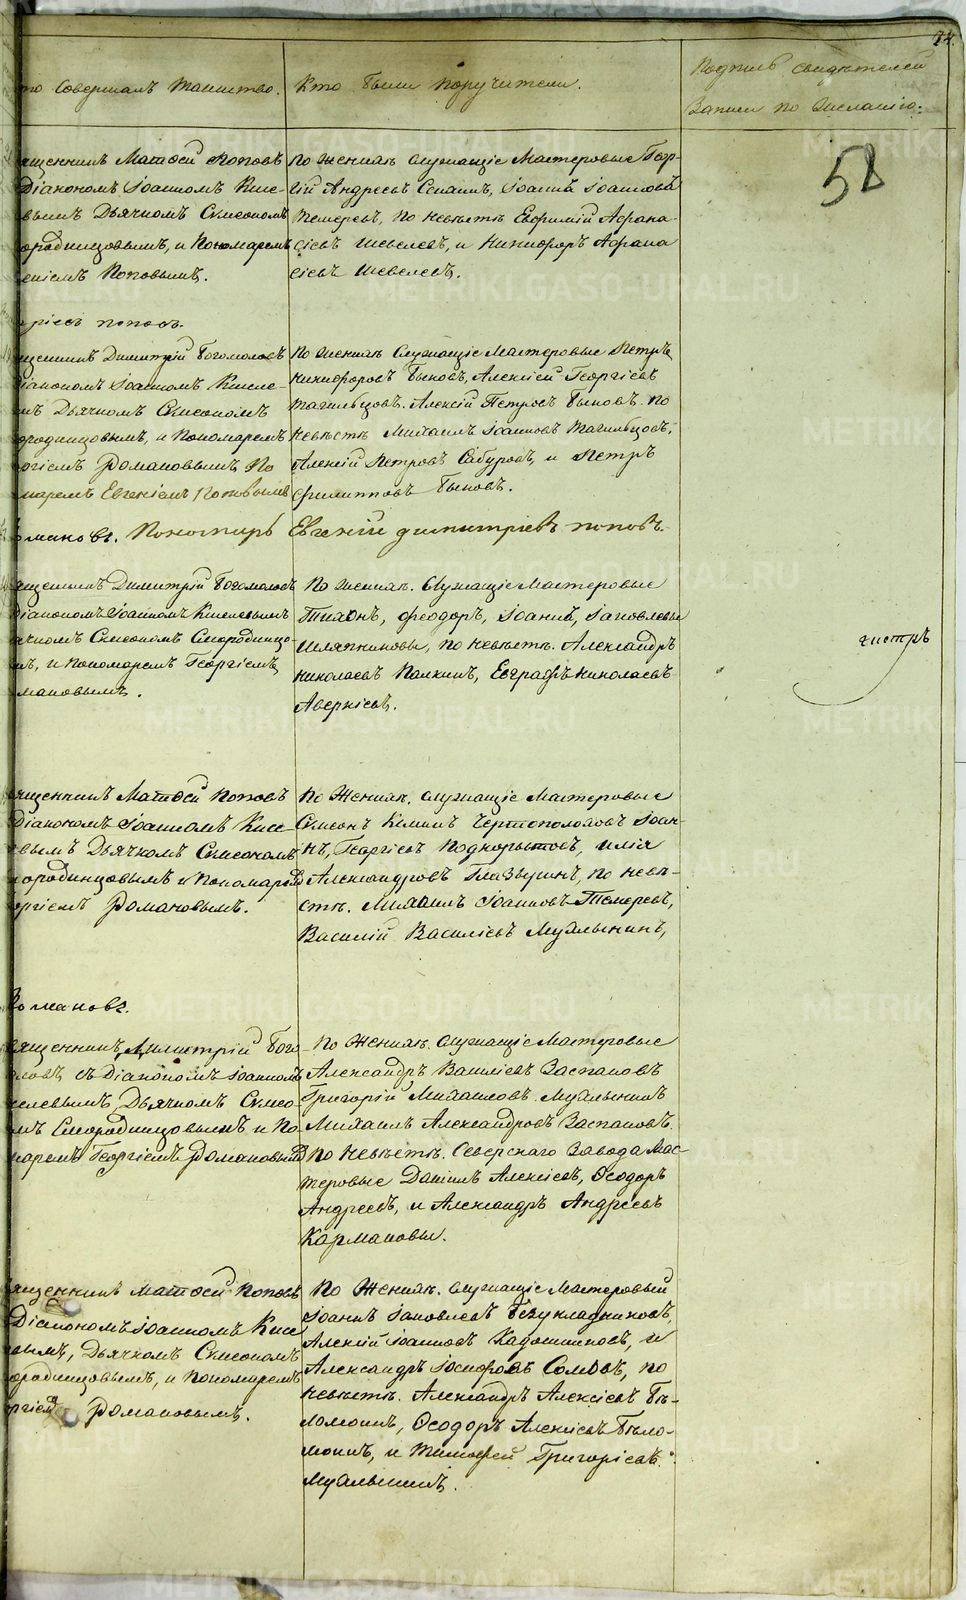 74.
то Совершалъ Таинство.
Кто были поручители.
Подпись свидѣтелей
Записи по желанію.
58
ященникъ Матѳей Поповъ
Діакономъ Іоанномъ Кисе-
вымъ Дьячкомъ Симеономъ
ородинцовымъ, и Пономаремъ
геніемъ Поповымъ.
По женихѣ служащіе Мастеровые Геор-
гій Андреевъ Іоаннъ Іоанновъ
Темеревъ, по невѣстѣ Евфимій Афана-
сіевъ Шевелевъ, и Никифоръ Афана
сіевъ Шевелевъ.
ріевъ поповъ.
ященникъ Димитрій Богомоловъ
Діакономъ Іоанномъ Кисле-
мъ Дьячкомъ Симеономъ
ородинцовымъ, и Пономаремъ
оргіемъ Романовымъ По
маремъ Евгеніемъ Поповымъ
По женихѣ Служащіе Мастеровые Петръ
Никифоровъ Быковъ, Алексій Георгіевъ
Тагильцовъ. Алексій Петровъ Быковъ. по
невѣстѣ Михаилъ Іоанновъ Тагильцовъ,
Алексій Петровъ Сабуровъ, и Петръ
Филипповъ Быковъ.
омановъ. Пономарь Евгеній димитріевъ поповъ.
ященникъ Димитрій Богомоловъ
Діакономъ Іоанномъ Киселевымъ
ячкомъ Симеономъ Смородинцо-
мъ, и Пономаремъ Георгіемъ
мановымъ.
По женихѣ. Служащіе Мастеровые
Тихонъ, Феодоръ, Іоаннъ, Іаковлевы
Шляпниковы, по невѣстѣ. Александръ
Николаевъ Палкинъ, Евграфъ Николаевъ
Аверкіевъ.
чистръ
ященникъ Матѳей Поповъ
Діакономъ Іоанномъ Кисе-
вымъ Дьячкомъ Симеономъ
ородинцовымъ и Пономаремъ
оргіемъ Романовымъ.
По Женихѣ. служащіе Мастеровые
Симеонъ Климъ Чертополоховъ Іоан-
нъ, Георгіевъ Подкорытовъ, Илія
Александровъ Глазыринъ, по невѣ-
стѣ. Михаилъ Іоанновъ Темеревъ,
Василій Василіевъ Мухлынинъ,
Романовъ.
ященникъ Димитрій Бого
ловъ, съ Діакономъ Іоанномъ
селевымъ, Дьячкомъ Симео-
мъ Смородинцовымъ и По
маремъ Георгіемъ Романовымъ
По Женихѣ. Служащіе Мастеровые
Александръ Василіевъ Заспановъ
Григорій Михаиловъ Мухлынинъ
Михаилъ Александровъ Заспановъ.
По Невѣстѣ. Северскаго Завода Мас-
теровые Даніилъ Алексіевъ, Ѳеодоръ
Андреевъ, и Александръ Андреевъ
Кормановы.
ященникъ Матѳей Поповъ
Діакономъ Іоанномъ Кисе
вымъ, Дьячкомъ Симеономъ
ородинцовымъ, и Пономаремъ
ргіемъ Романовымъ.
По Женихѣ. служащіе Мастеровый
Іоаннъ Іаковлевъ Безукладниковъ,
Алексій Іоанновъ Кадошниковъ, и
Александръ Іосифовъ Сомовъ, по
невѣстѣ. Александръ Алексіевъ Бѣ-
ломоинъ, Ѳеодоръ Алексіевъ Бѣло-
моинъ, и Тимоѳей Григоріевъ.
Мухлынинъ.
METRIKI.GASO-URAL.RU